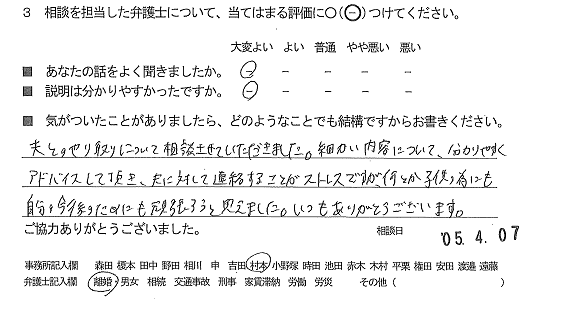 3 相談を担当した弁護士について、当てはまる評価に○(⊖)つけてください。
大変よい よい 普通 やや悪い 悪い
■ あなたの話をよく聞きましたか。 － － － － －
■ 説明は分かりやすかったですか。 － － － － －
■ 気がついたことがありましたら、どのようなことでも結構ですからお書きください。
夫とのやり取りについて相談させていただきました。細かい内容について、分かりやすく
アドバイスして頂き、夫に対して連絡することがストレスですが何とか子供の為にも
自分の今後のためにも頑張ろうと思えました。いつもありがとうございます。
ご協力ありがとうございました。 相談日 '05.4.07
事務所記入欄 森田 榎本 田中 野田 相川 申 吉田 村本 小野塚 時田 池田 赤木 木村 平栗 権田 安田 渡邉 遠藤
弁護士記入欄 離婚・男女 相続 交通事故 刑事 家賃滞納 労働 労災 その他（ ）